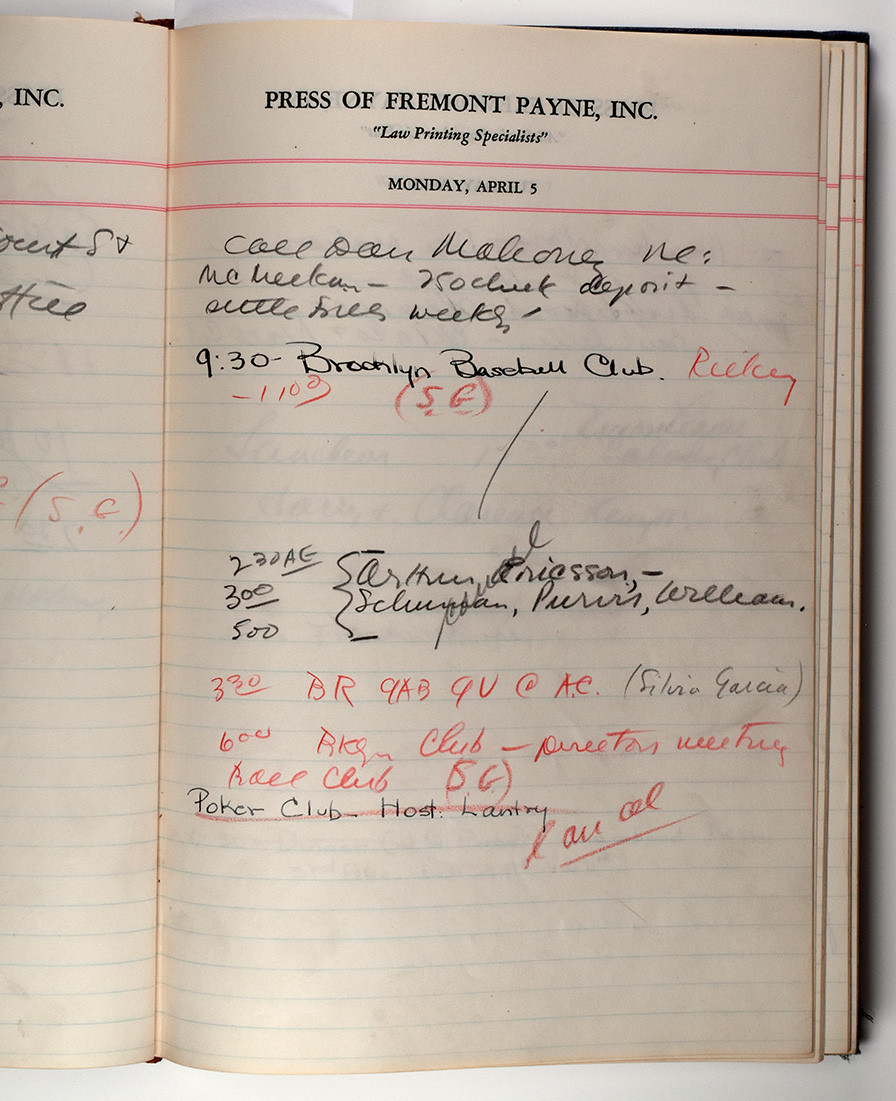 , INC.
PRESS OF FREMONT PAYNE, INC.
"Law Printing Specialists"
MONDAY, APRIL 5
Court St
Call Dan Mahoney re:
McMeekan - 250 check deposit -
settle fees weekly -
9:30 - Brooklyn Baseball Club. Rickey
- 11 00 (S.G)
(S.G.)
2 30 AE
3 00 Schuman, Purvis, William.
5 00
3 30 BR 9AB 9V @ A.C. (Silvia Garcia)
6 00 Bklyn Club - Directors meeting
Ball Club (S G)
Poker Club - Host: Lantry
Cancel